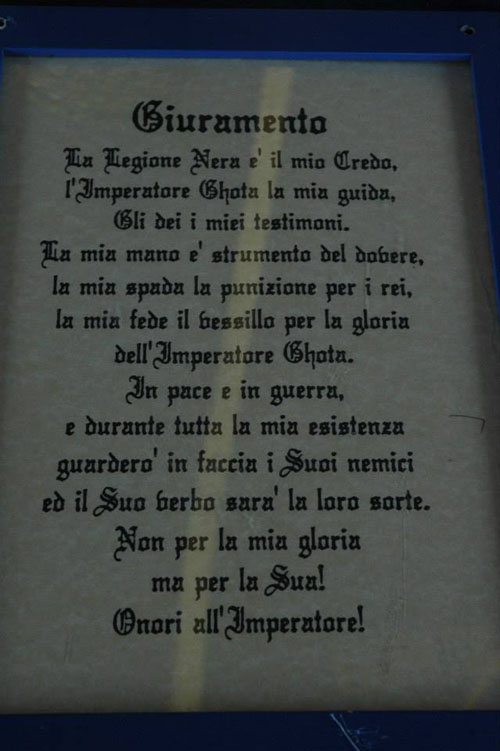 Giuramento
La Legione Nera e' il mio Credo,
l'Imperatore Ghota la mia guida,
Gli dei i miei testimoni.
La mia mano e' strumento del dovere,
la mia spada la punizione per i rei,
la mia fede il vessillo per la gloria
dell'Imperatore Ghota.
In pace e in guerra,
e durante tutta la mia esistenza
guardero' in faccia i Suoi nemici
ed il Suo verbo sara' la loro sorte.
Non per la mia gloria
ma per la Sua!
Onori all'Imperatore!